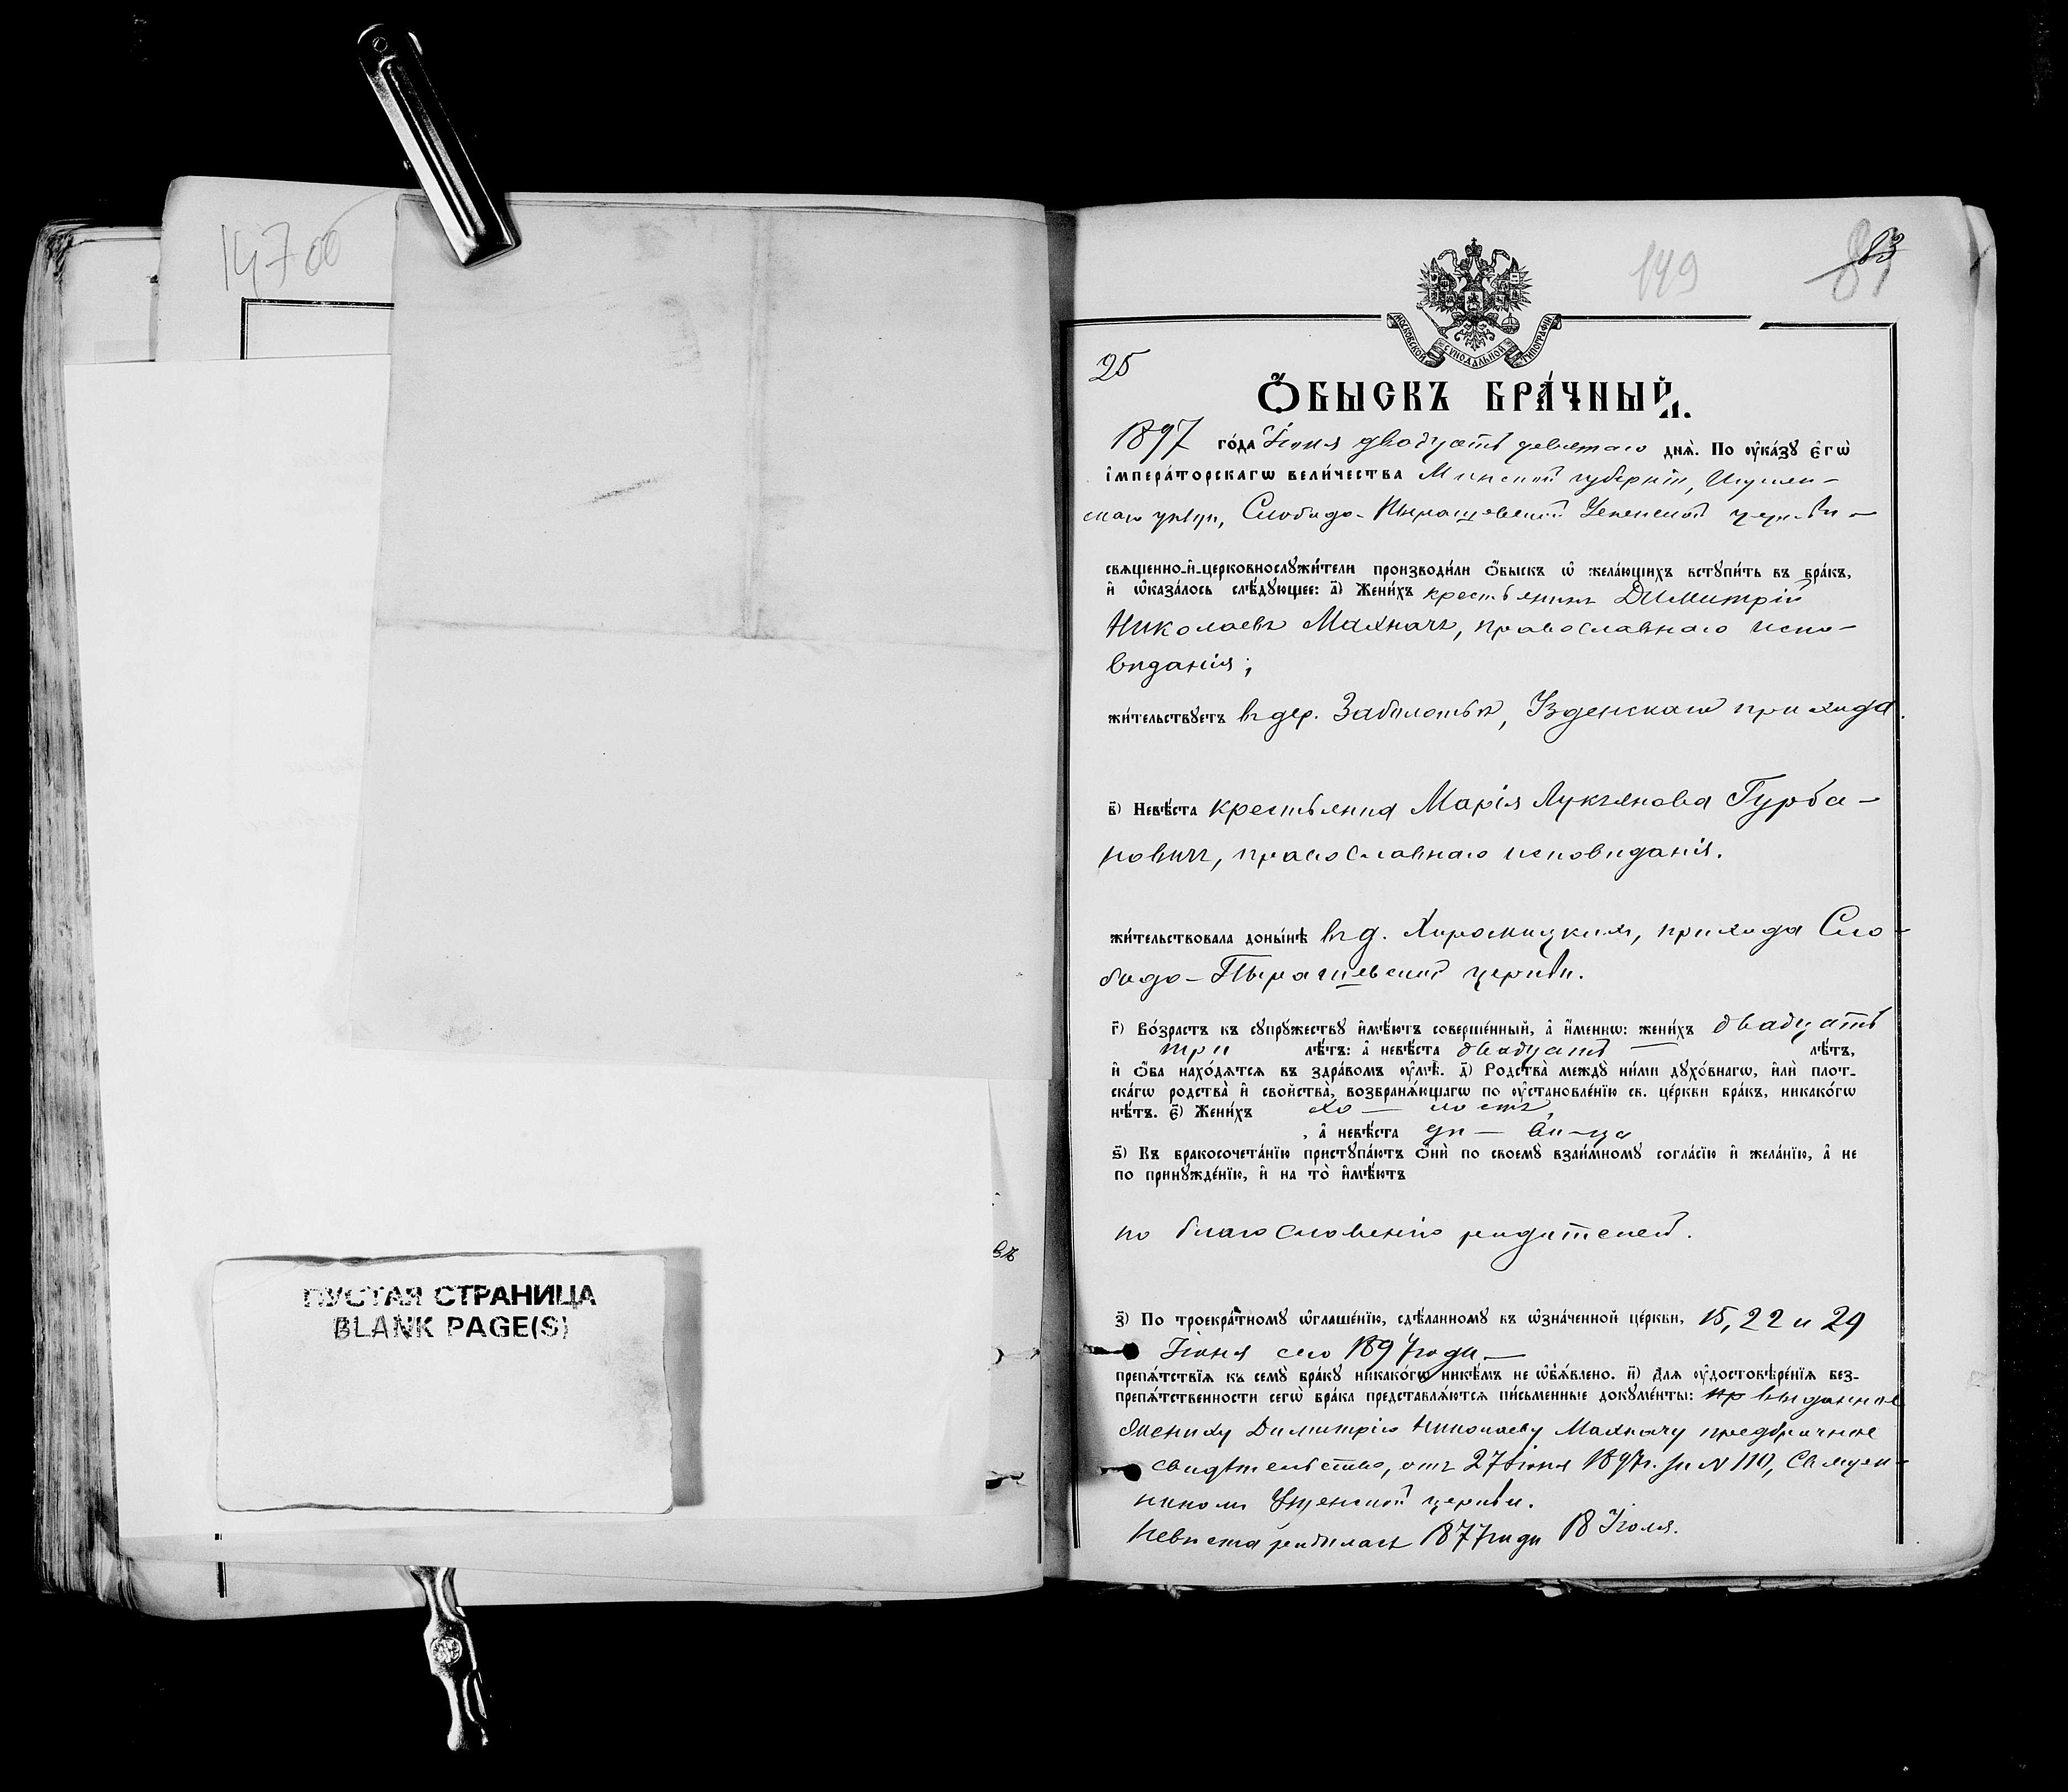 14700
ПУСТАЯ СТРАНИЦА
BLANK PAGE(S)
въ
149
83
МОСКОВСКОЙ СѴНОДАЛЬНОЙ ТИПОГРАФІИ
25
Ѻ҆БЫСКЪ БРА́ЧНЫЙ.
1897 го́да Іюня двадцать девятаго днѧ̀. По ᲂу҆ка́зꙋ є҆гѡ̀
і҆мпера́торскагѡ вели́чества Минской губерніи, Игумен-
скаго уѣзда, Слободо-Пырашевской Успенской церкви -
свѧще́нно-и҆-церковнослꙋжи́тели производи́ли ѻ҆́быскъ ѡ҆ жела́ющихъ встꙋпи́ть въ бра́къ,
и҆ ѡ҆каза́лось слѣ́дꙋющее: а҃) Жени́хъ крестьянинъ Димитрій
Николаевъ Махначъ, православнаго испо-
вѣданія;
жи́тельствꙋетъ въ дер. Заболотьѣ, Узденскаго прихода.
в҃) Невѣ́ста крестьянка Марія Лукьянова Гурба-
новичъ, православнаго исповѣданія.
жи́тельствовала доны́нѣ въ д. прихода Сло-
бодо-Пырашевской церкви.
г҃) Во́зрастъ къ сꙋпрꙋ́жествꙋ и҆мѣ́ютъ соверше́нный, а҆ и҆́меннѡ: жени́хъ двадцать
три лѣ́тъ: а҆ невѣ́ста двадцать — лѣ́тъ,
и҆ ѻ҆́ба нахо́дѧтсѧ въ здра́вомъ ᲂу҆мѣ̀. д҃) Родства̀ междꙋ̀ ни́ми дꙋхо́внагѡ, и҆лѝ плот-
ска́гѡ родства̀ и҆ свойства̀, возбранѧ́ющагѡ по ᲂу҆становле́нїю св. це́ркви бра́къ, никако́гѡ
нѣ́тъ. є҃) Жени́хъ хо — лостъ,
, а҆ невѣ́ста дѣ — ви-ца
ѕ҃) Къ бракосочета́нїю пристꙋпа́ютъ ѻ҆нѝ по своемꙋ̀ взаи́мномꙋ согла́сїю и҆ жела́нїю, а҆ не
по принꙋжде́нїю, и҆ на то̀ и҆мѣ́ютъ
по благословенію родителей.
з҃) По троекра́тномꙋ ѡ҆глаше́нїю, сдѣ́ланномꙋ въ ѡ҆зна́ченной це́ркви, 15, 22 и 29
Іюня сего 1897 года —
препѧ́тствїѧ къ семꙋ̀ бра́кꙋ никако́гѡ никѣ́мъ не ѡ҆б̾ѧ́влено. и҃) Длѧ ᲂу҆достовѣре́нїѧ без-
препѧ́тственности сегѡ̀ бра́ка представлѧ́ютсѧ пи́сьменные докꙋме́нты: пр выданное
жениху Димитрію Николаеву Махначу предбрачное
свидѣтельство, отъ 27 Іюня 1897 г. за N 110, Священ-
никомъ Узденской церкви.
Невѣста родилась 1877 года 18 Іюля.